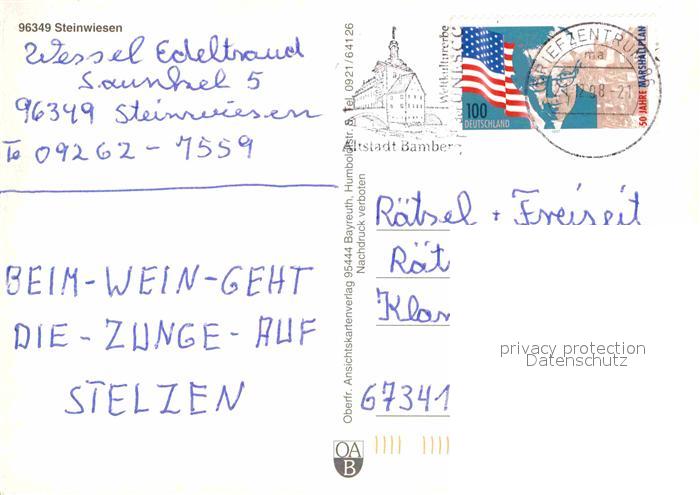 96349 Steinwiesen
Wessel Edeltraud
5
96349 Steinwiesen
Te 09262 - 7559
BEIM-WEIN-GEHT
DIE-ZUNGE-AUF
STELZEN
Oberfr. Ansichtskartenverlag 95444 Bayreuth, Humboldtstr. 8, Tel. 0921/64126
Nachdruck verboten
OA
B
Weltkulturerbe
UNESCO
ltstadt Bamberg
100
DEUTSCHLAND
50 JAHRE MARSHALLPLAN
BRIEFZENTRUM 96
Rätsel + Freiseit
Rät
Klar
67341
privacy protection
Datenschutz